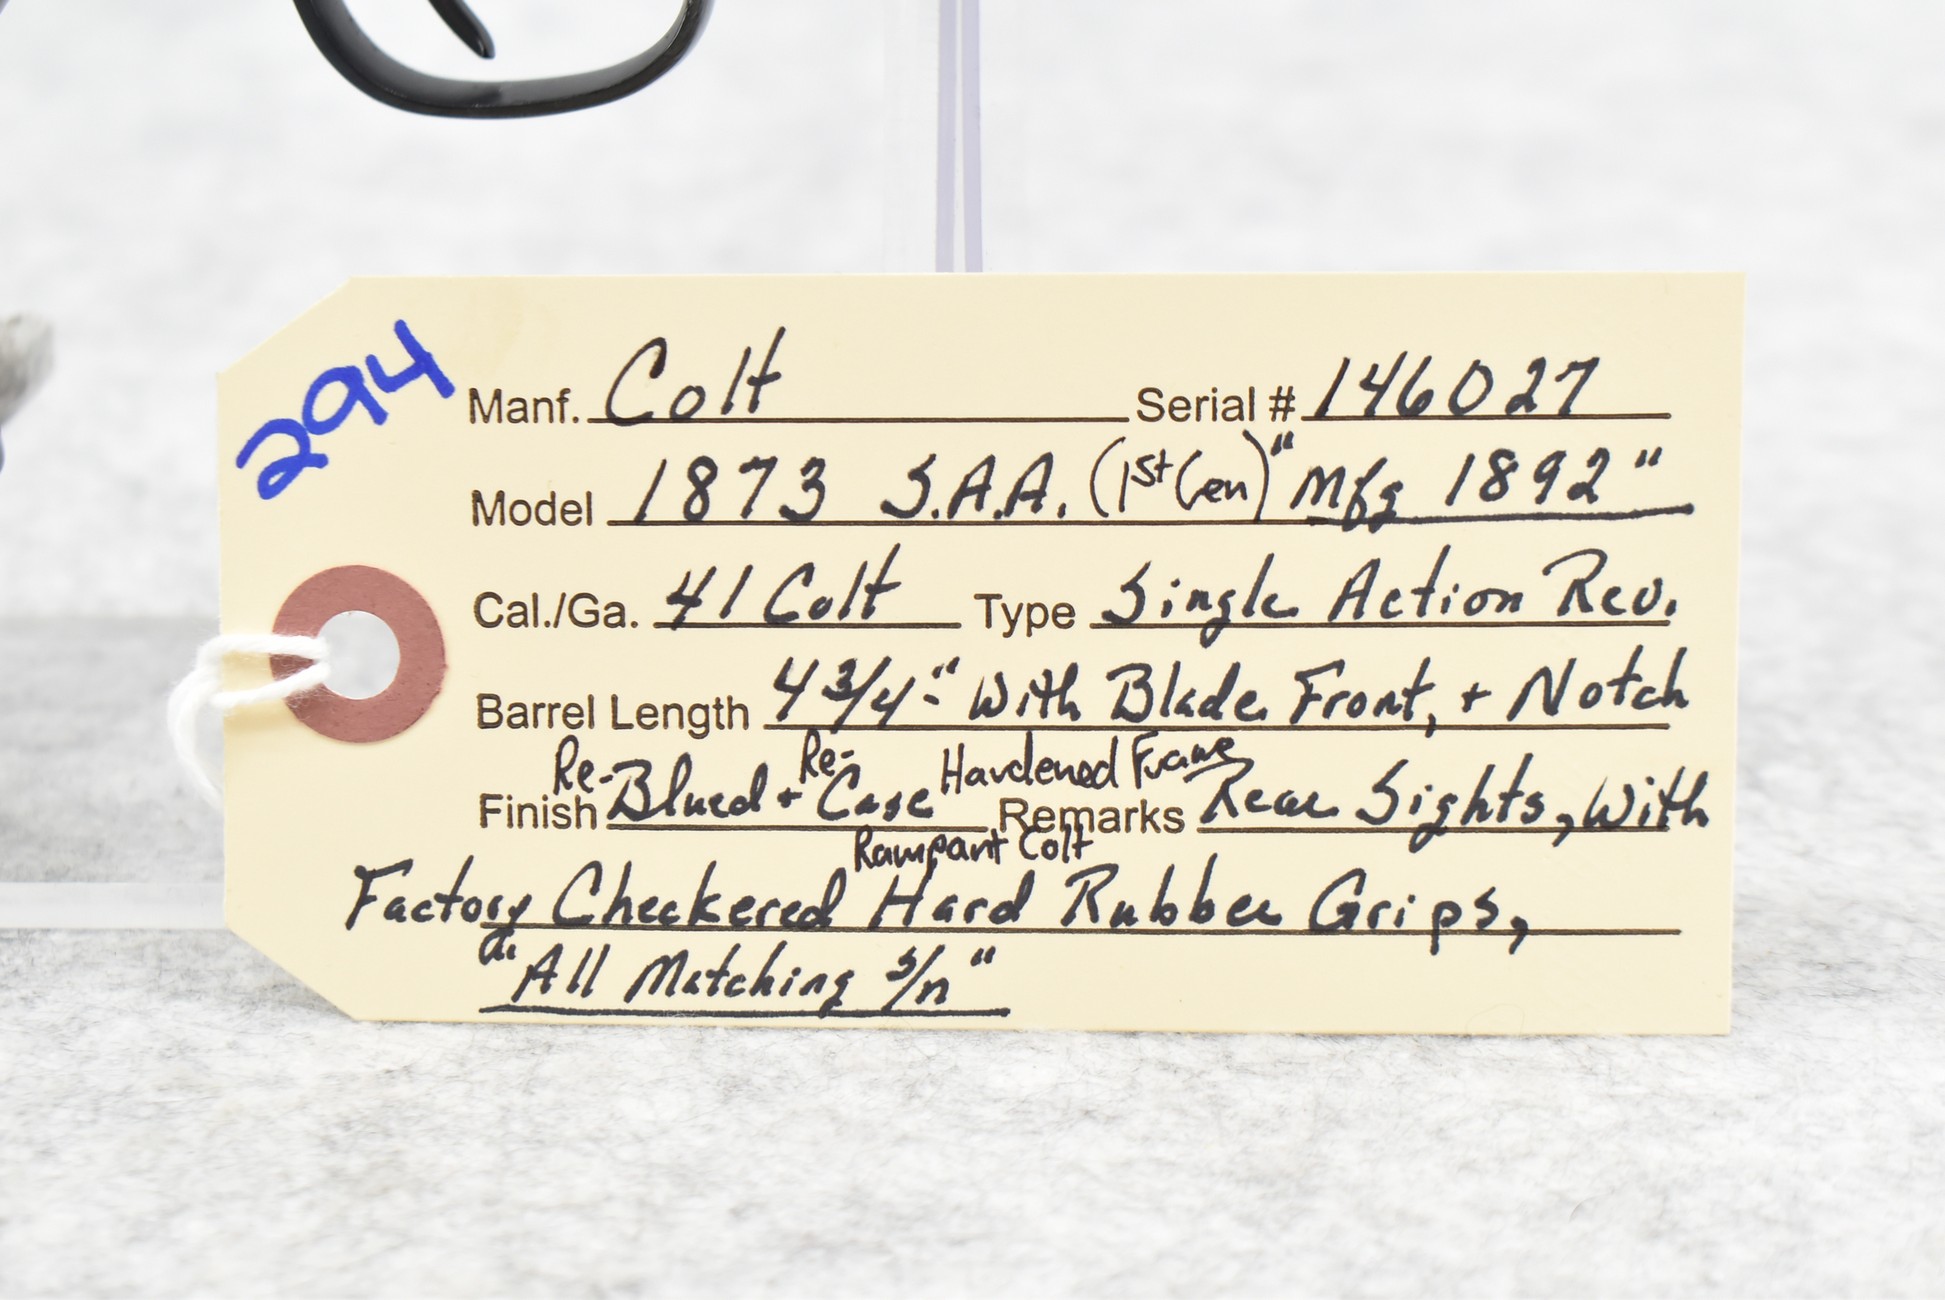 294
Manf. Colt Serial # 146027
Model 1873 S.A.A. (1st Gen) "Mfg 1892"
Cal./Ga. 41 Colt Type Single Action Rev.
Barrel Length 4 3/4" With Blade Front, + Notch
Re- Re- Hardened Frame
Finish Blued + Case Remarks Rear Sights, With
Rampant Colt
Factory Checkered Hard Rubber Grips,
"All Matching s/n"